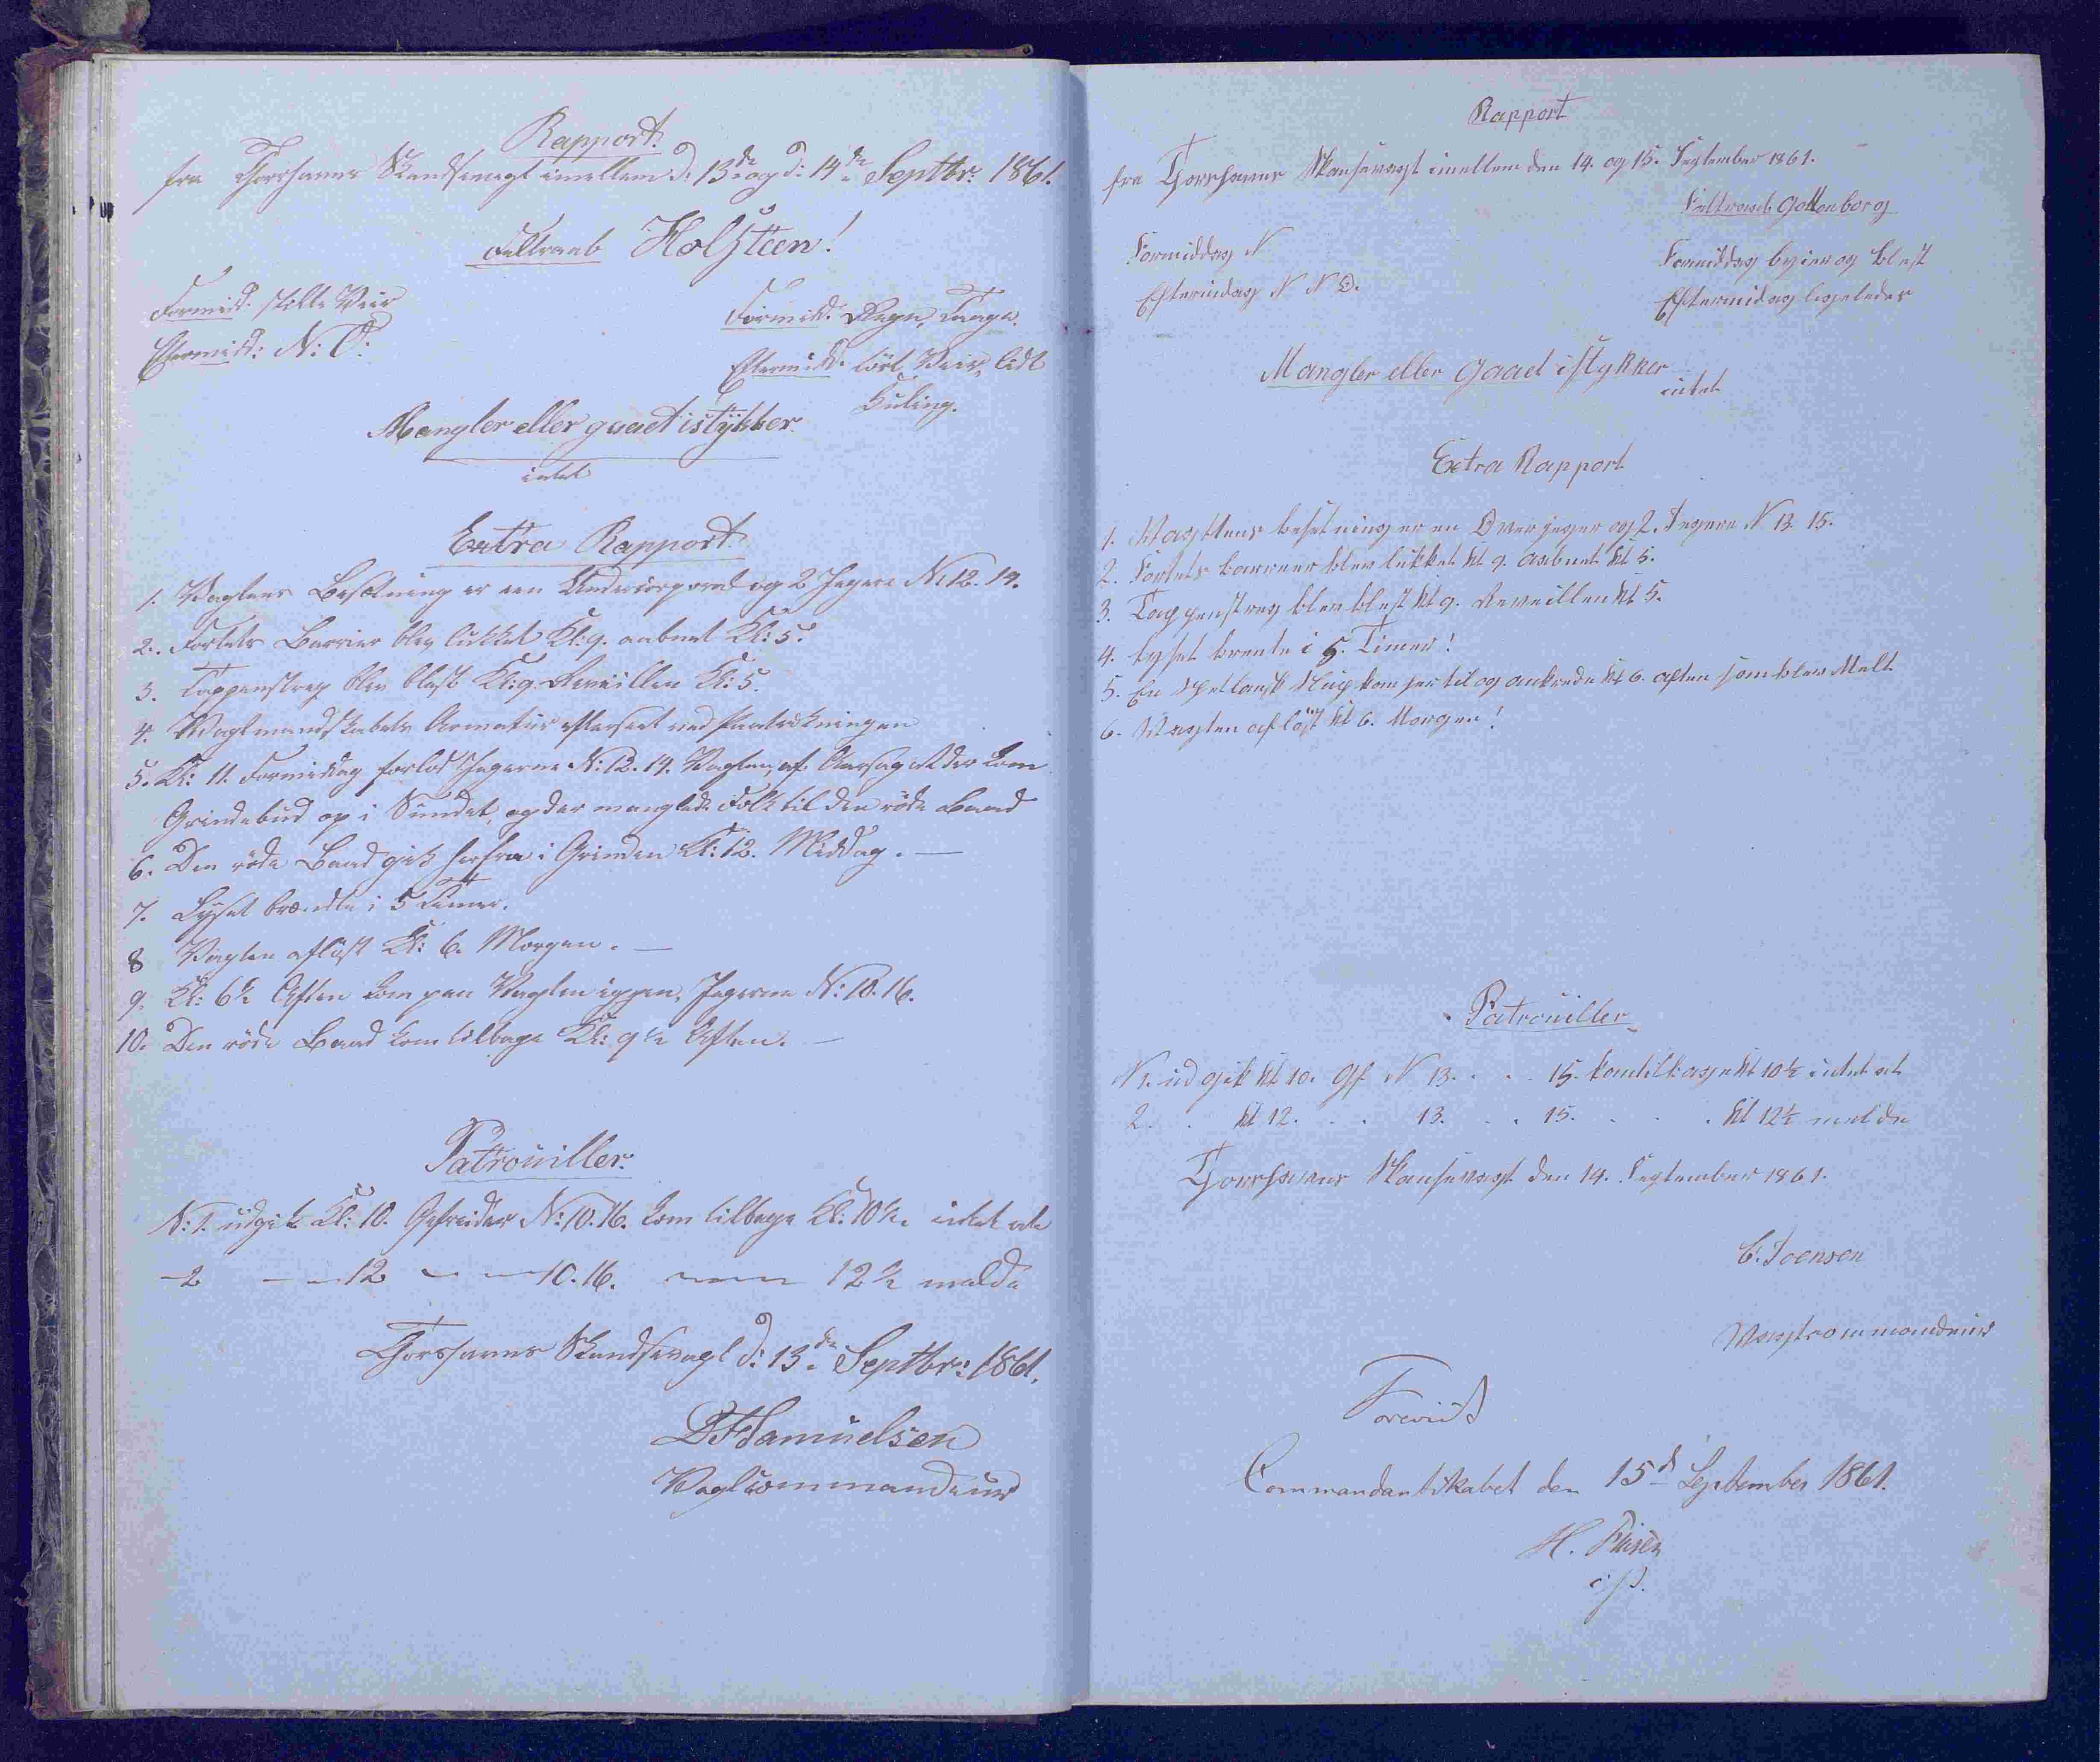 Rapport.
fra Thorshavns Skandsevagt imellem d: 13de og d: 14de Septbr: 1861.
Feltraab Holsteen!
Formidd: stille Veir
Formidd: Regn, Taage.
Eftermidd: N: O:
Eftermidd: tört Veir, lidt
Kuling.
Mangler eller gaaet istÿkker
intet
Extra Rapport.
1. Vagtens Besætning er een Undercorporal og 2 Jegere N: 12. 14.
2. Fortets Barrier blev lukket Kl: 9. aabnet Kl: 5.
3. Tappenstreg blev blæst Kl: 9. Reveillen Kl: 5.
4. Vagtmandskabets Armatur efterseet ved Paatrækningen
5. Kl: 11. Formiddag forlod Jegerne N: 12. 14. Vagten, af Aarsag at der kom
Grindebud op i Sundet, og der manglede Folk til den röde Baad
6. Den röde Baad gik herfra i Grinden Kl: 12. Middag. —
7. Lyset brændte i 5 Timer.
8 Vagten aflöst Kl: 6. Morgen. —
9. Kl: 6½ Aften kom paa Vagten igjen, Jegerne N: 10. 16.
10. Den röde Baad kom tilbage Kl: 9½ Aften. —
Patrouiller.
N: 1. udgik Kl: 10. Gefreider N: 10. 16. kom tilbage Kl: 10½. intet at
-2 - - 12 - - 10. 16. 12½ melde
Thorshavns Skandsevagt d: 13de Septbr: 1861.
Samuelsen
Vagtcommandeur
Rapport
fra Thorshavns Skansevagt imellem den 14. og 15. September 1861.
Feltraab Gottenborg
Formiddag N
Formiddag byier og blest
Eftermidag N N O.
Eftermidag ligeledes
Mangler eller Gaaet istykker
intet
Extra Rapport
1. Vagttens besetning er en Overjeger og 2. Jegere N 13. 15.
2. Fortets barrier blev lukket kl 9. aabnet kl 5.
3. Tappenstreg blev blest kl 9. Reveillen kl 5.
4. Lyset brente i 5. Timer!
5. En Hetlansk Slup kom her til og ankrede kl 6. aften som blev Melt
6. Vagten aflöst kl 6. Morgen!
Patrouiller
N 1. ud gik kl 10. Gf. N 13. . . . 15. kom tilbage kl 10½ intet at
2. . kl 12. . . 13. . . 15. . . . kl 12½ melde
Thorshavns Skansevagt den 14. September 1861.
C. Joensen
Vagtcommandeur
Foreviist
Commandantskabet den 15d September 1861.